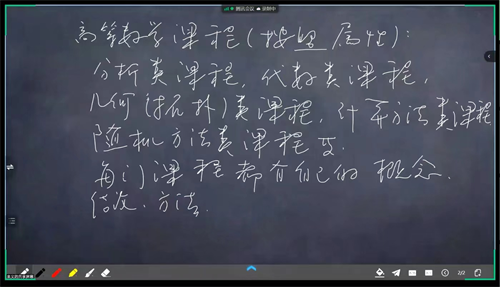 腾讯会议 录制中
高等数学课程(按照属性):
分析类课程,代数类课程,
几何(拓扑)类课程,计算方法类课程
随机方法类课程等.
每门课程都有自己的概念.
方法.
2/2